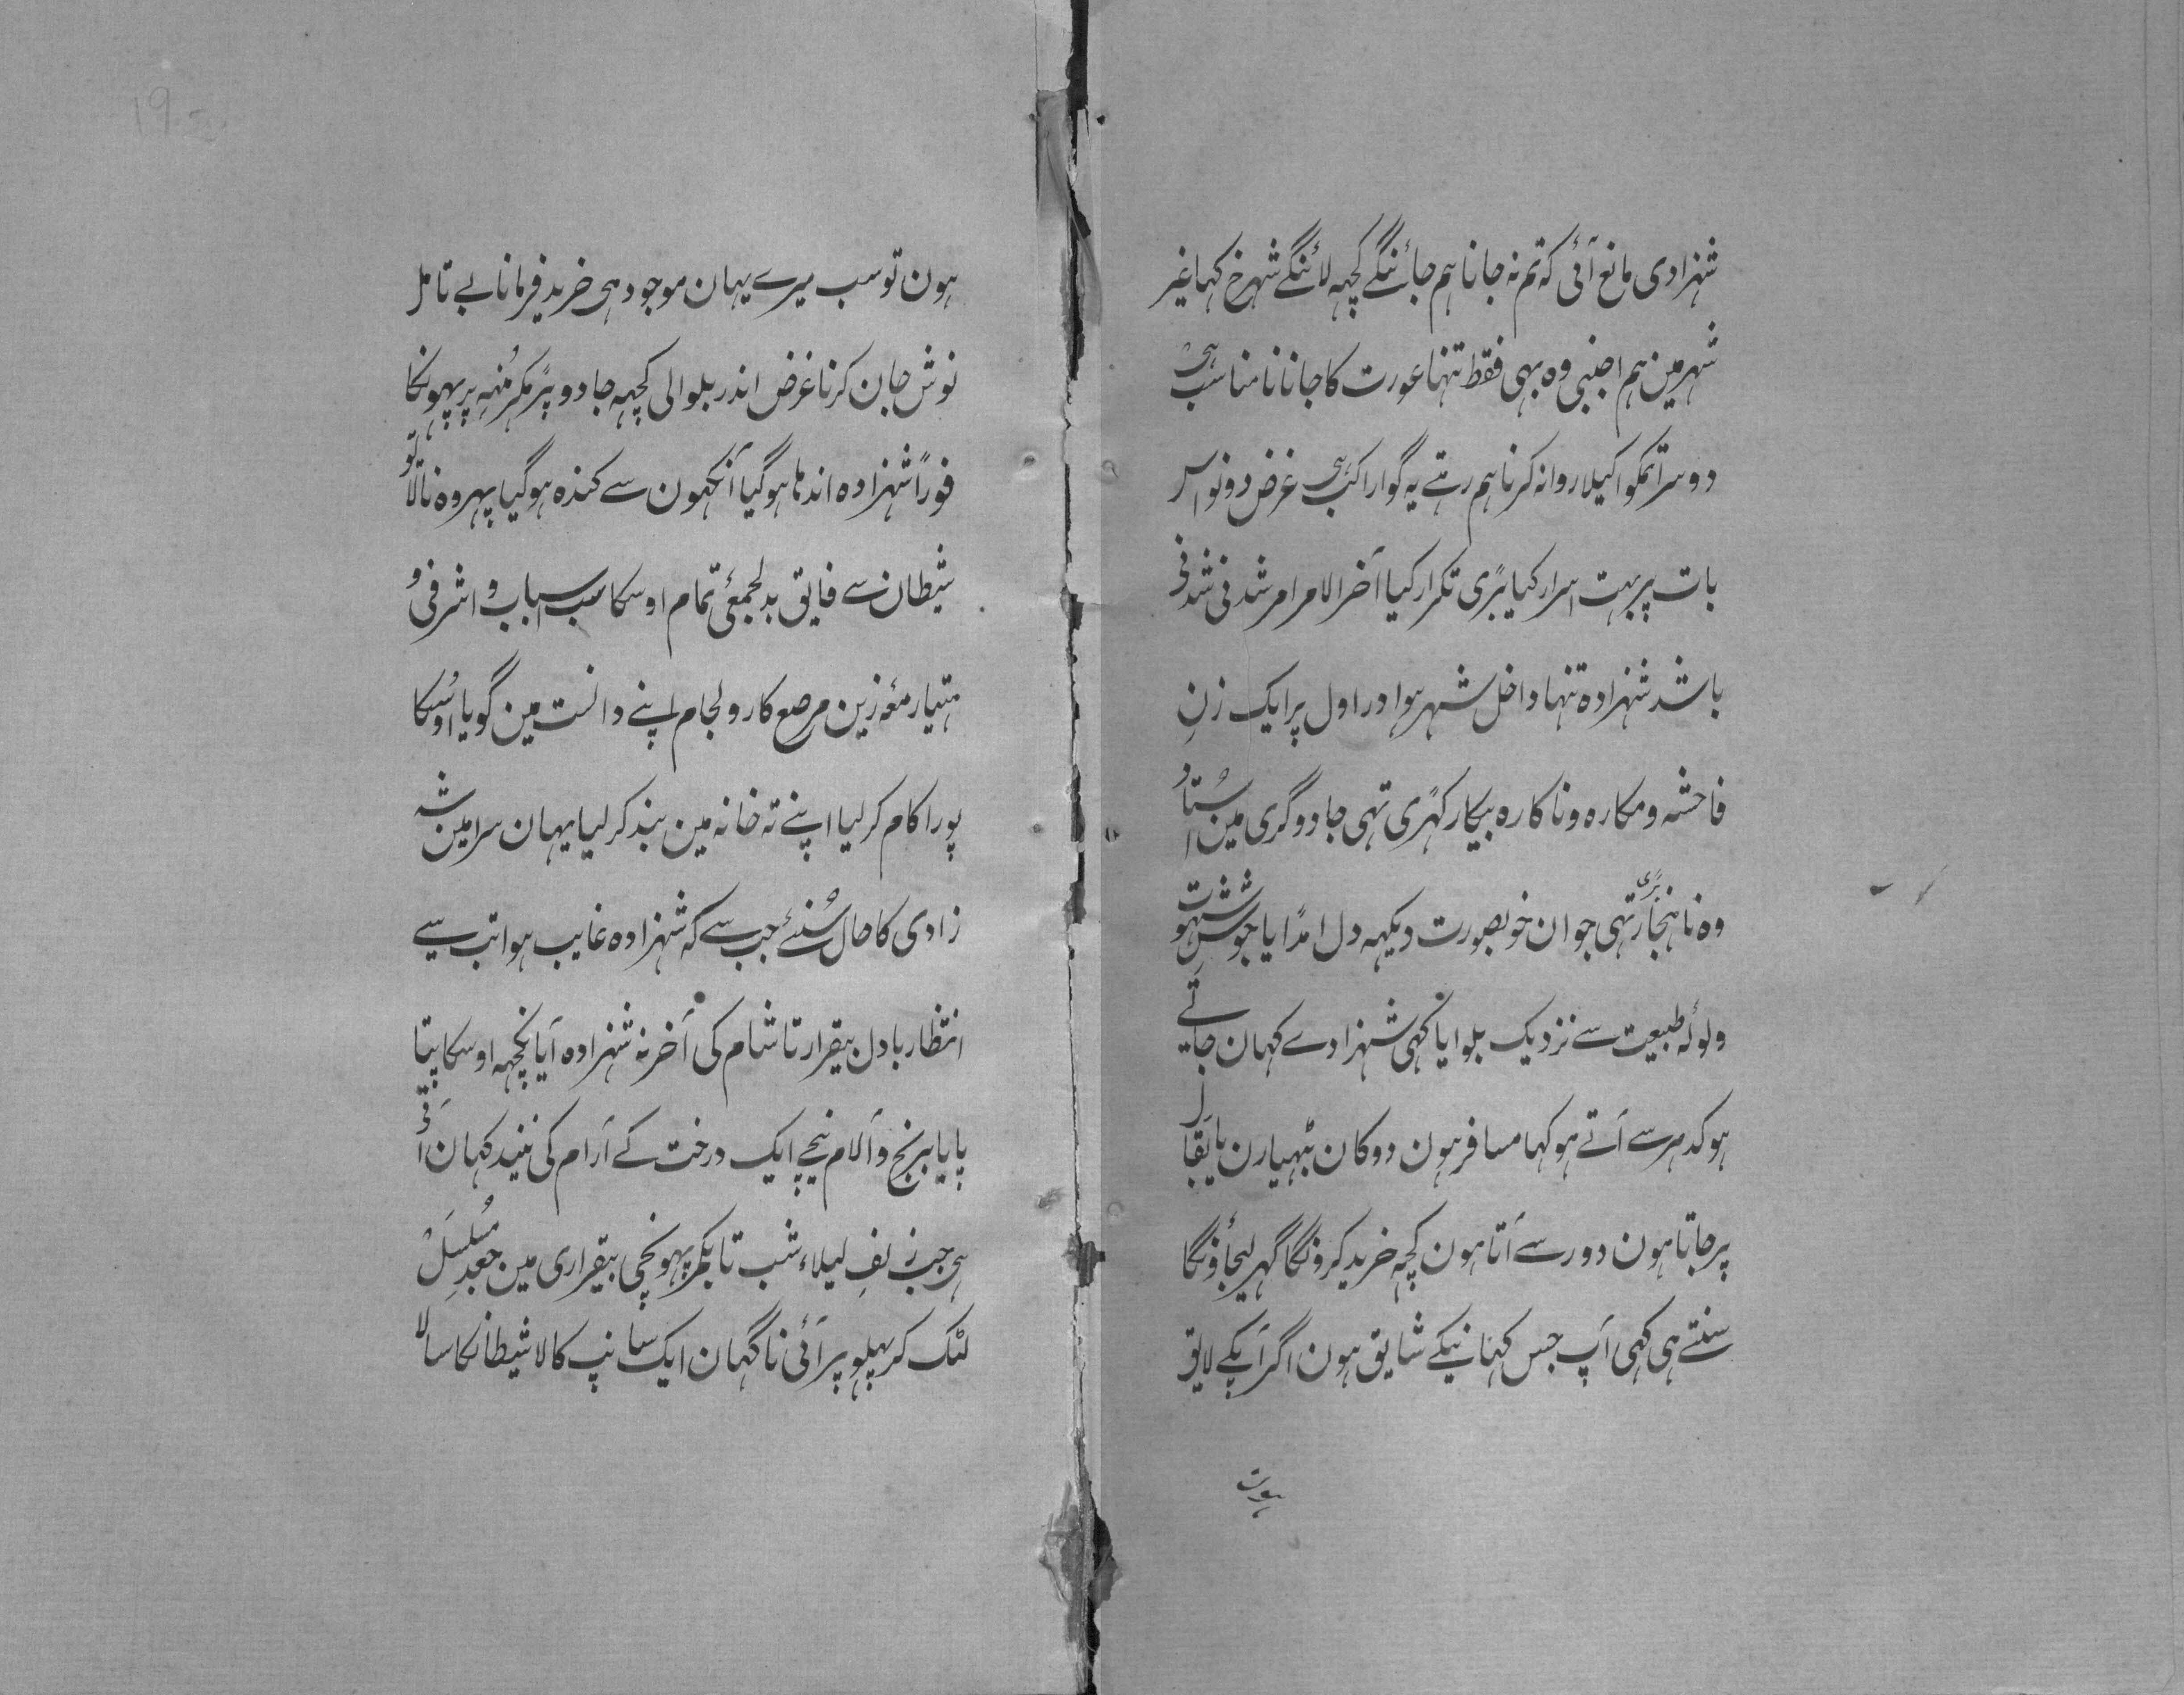 شہزادی مانع آئی کہ تم نہ جانا ہم جائنگے کچہہ لائنگے شہرخ کہا غیر
شہر مین ہم اجنبی وہ بہی فقط تنہا عورت کا جانا نامناسب ہی
دوسرا تمکو اکیلا روانہ کرنا ہم رہتے یہ گوارا کب ہی غرض دونو اس
بات پر بہت اسرار کیا بڑی تکرار کیا آخر الامر امر شدنی شدنی
باشد شہزادہ تنہا داخل شہر ہوا در اول پر ایک زنِ
فاحشہ و مکارہ و ناکارہ بیکار کہڑی تہی جادوگری مین اُستاد
وہ ناہنجار بڑی تہی جوان خوبصورت دیکہہ دل امڈایا جوشِ شہوت
ولولہ طبیعت سے نزدیک بلوایا کہی شہزادے کہان جاتے
ہو کدہر سے آتے ہو کہا مسافر ہون دوکان بٹہیارن یا بقال
پر جاتا ہون دور سے آتا ہون کچہ خرید کرونگا گہر لیجاؤنگا
سنتے ہی کہی آپ جس کہانیکے شایق ہون اگر آپکے لایق
ہون
19
ہون تو سب میرے یہان موجود ہی خرید فرمانا بے تامل
نوش جان کرنا غرض اندر بلوالی کچہہ جادو پڑہکر مُنہہ پر پہونکا
فوراً شہزادہ اندہا ہو گیا آنکہون سے کندہ ہو گیا پہر وہ نالائق
شیطان سے فایق بدلجمعئ تمام اوسکا سب اسباب و اشرفی و
ہتیار معہ زین مرصع کار و لجام اپنے دانست مین گویا اوسکا
پورا کام کر لیا اپنے تہ خانہ مین بند کر لیا یہان سرا مین شہ
زادی کا حال سُنئے جب سے کہ شہزادہ غایب ہوا تب سے
انتظار بادل بیقرار تا شام کی آخر نہ شہزادہ آیا نکچہہ اوسکا پتا
پایا برنج و آلام نیچے ایک درخت کے آرام کی نیند کہان آتی
ہی جب زلفِ لیلاء شب تا بکمر پہونچی بیقراری مین جعدِ مُسلسَل
لٹک کر پہلو پر آئی ناگہان ایک سانپ کالا شیطانکا سالا